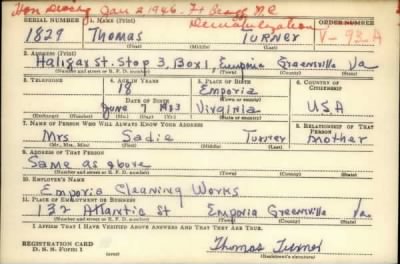 Hon Dischg Jan 2 1946. Ft Bragg N.C
Demobilization
SERIAL NUMBER 1. NAME (Print) ORDER NUMBER
1829 Thomas Turner V-93-A
(First) (Middle) (Last)
2. ADDRESS (Print)
Halifax st. Stop 3, Box 1, Emporia Greensville Va
(Number and street or R. F. D. number) (Town) (County) (State)
3. TELEPHONE 4. AGE IN YEARS 5. PLACE OF BIRTH 6. COUNTRY OF CITIZENSHIP
18 Emporia
DATE OF BIRTH (Town or county)
June 7 1923 Virginia USA
(Mo.) (Day) (Yr.) (State or country)
7. NAME OF PERSON WHO WILL ALWAYS KNOW YOUR ADDRESS 8. RELATIONSHIP OF THAT PERSON
Mrs Sadie Turner mother
(Mr., Mrs., Miss) (First) (Middle) (Last)
9. ADDRESS OF THAT PERSON
Same as above
(Number and street or R. F. D. number) (Town) (County) (State)
10. EMPLOYER'S NAME
Emporia Cleaning Works
11. PLACE OF EMPLOYMENT OR BUSINESS
132 Atlantic St Emporia Greensville Va.
(Number and street or R. F. D. number) (Town) (County) (State)
I AFFIRM THAT I HAVE VERIFIED ABOVE ANSWERS AND THAT THEY ARE TRUE.
REGISTRATION CARD
D. S. S. Form 1 Thomas Turner
(Registrant's signature)